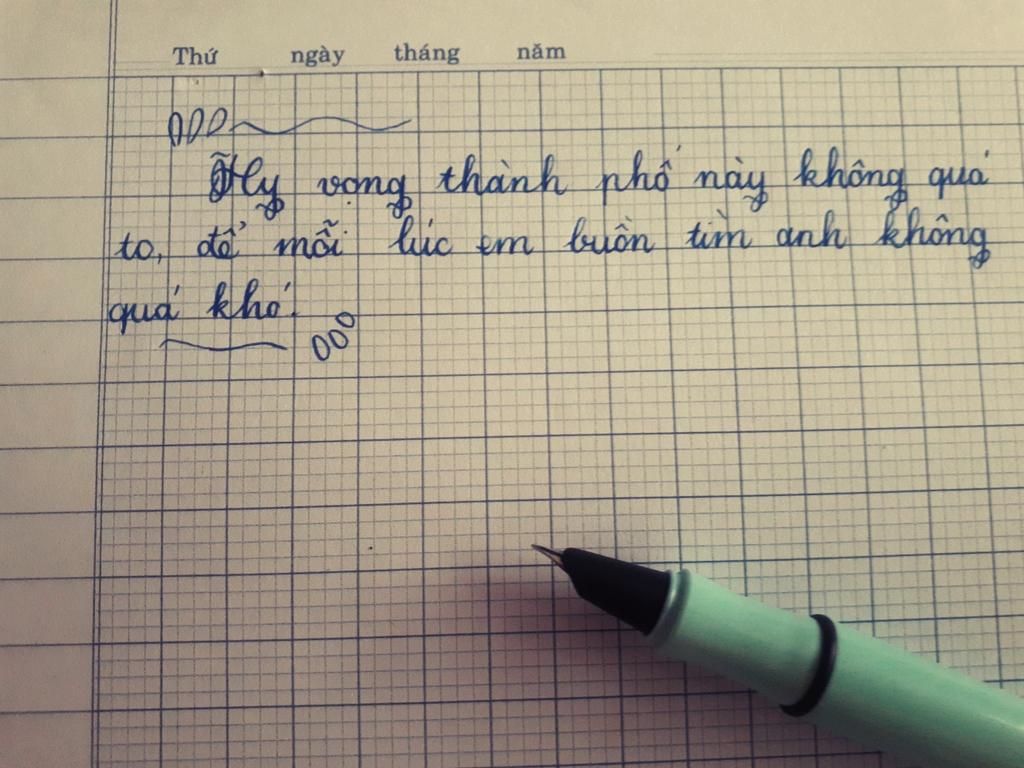 Thứ ngày tháng năm
Hy vọng thành phố này không quá
to, để mỗi lúc em buồn tìm anh không
quá khó.